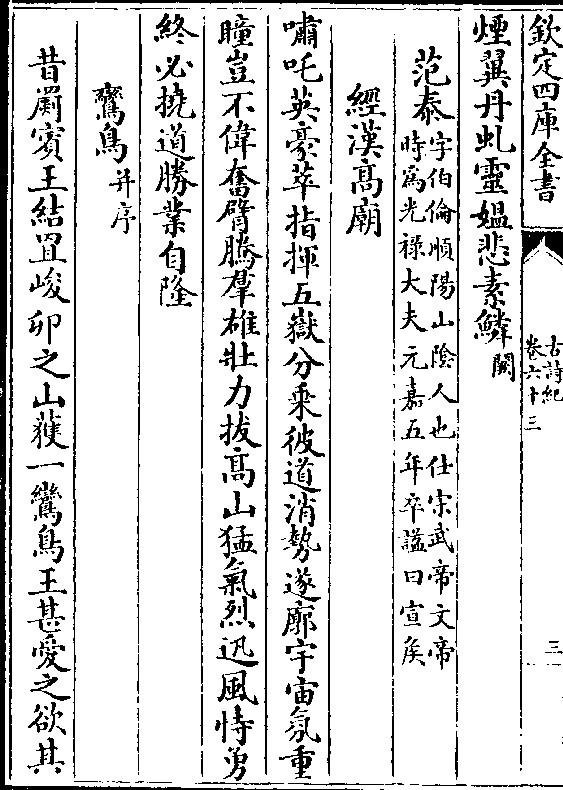 欽定四庫全書
古詩紀
卷六十三
三
煙翼丹虬靈媼悲素鱗闕
范泰字伯倫順陽山陰人也仕宋武帝文帝
時為光祿大夫元嘉五年卒謚曰宣矦
經漢髙廟
嘯吒英豪萃指揮五嶽分乗彼道消勢遂廓宇宙氛重
瞳豈不偉奮臂騰羣雄壯力拔髙山猛氣烈迅風恃勇
終必撓道勝業自隆
鸞鳥并序
昔罽賓王結罝峻夘之山獲一鸞鳥王甚愛之欲其